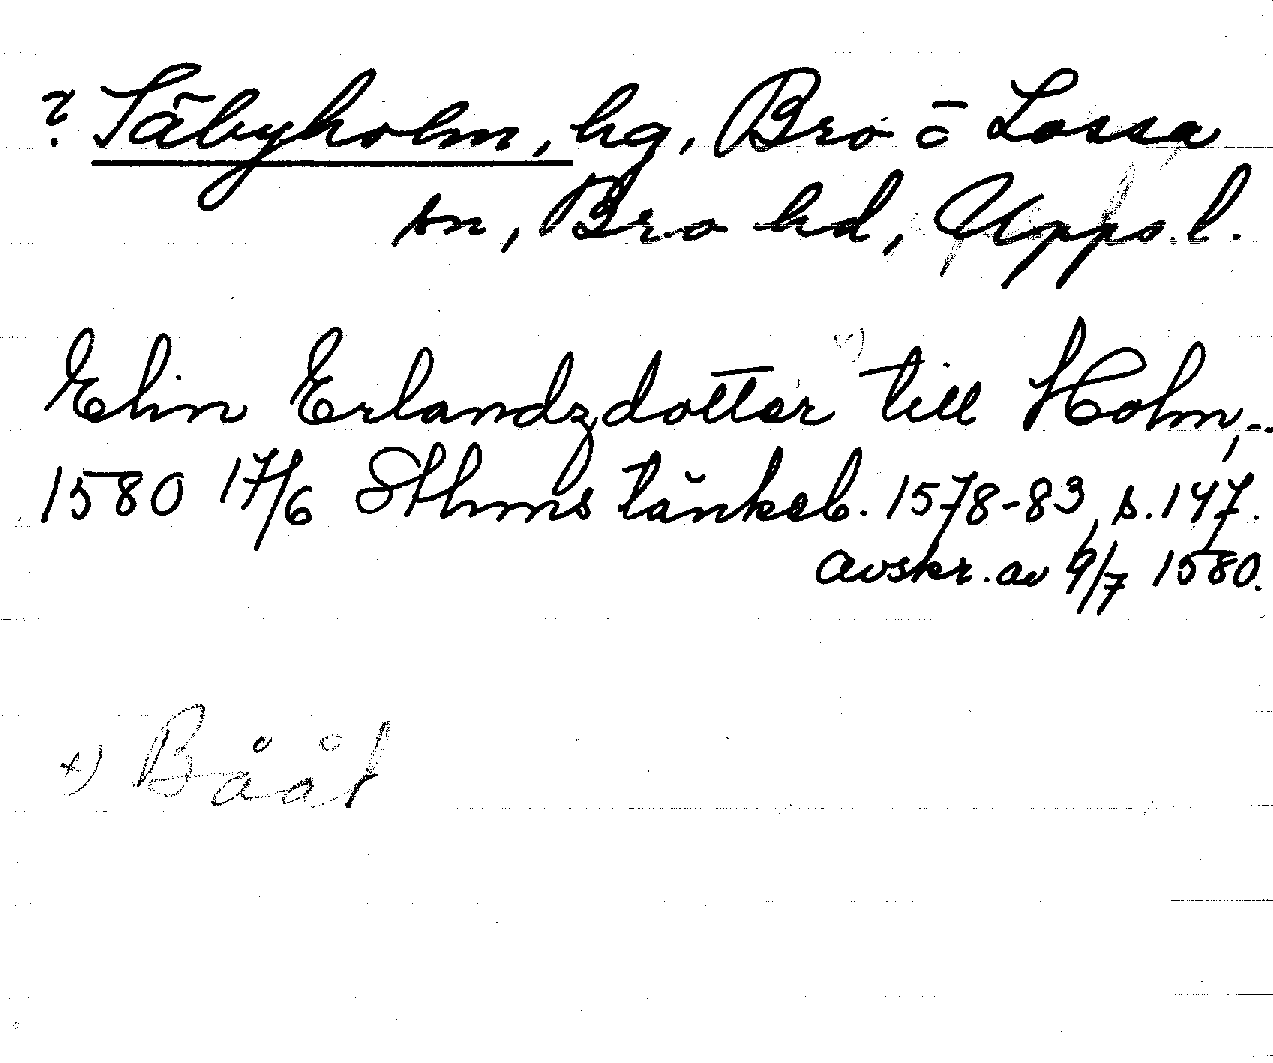 ? Säbyholm, hg, Bro o Lossa
sn, Bro hd, Upps. l.
Elin Erlandzdotter x) till Holm,..
1580 17/6 Sthms tänkeb. 1578-83, s. 147.
avskr. av 9/7 1580.
x) Bååt